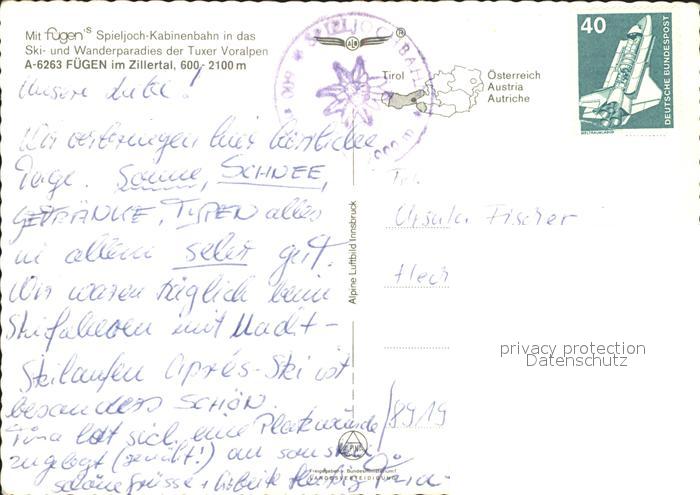 Mit fügen's Spieljoch-Kabinenbahn in das
Ski- und Wanderparadies der Tuxer Voralpen
A-6263 FÜGEN im Zillertal, 600 - 2100 m
Unsere Liebe!
Wir verbringen hier herrliche
Tage. Sonne, SCHNEE,
GETRÄNKE, TYPEN alles
in allem sehr gut.
Wir waren täglich beim
Skifahren mit Nackt-
Skilaufen Après-Ski ist
besonders SCHÖN.
hat sich eine Platzwunde
zugelegt (genäht!) ansonsten
schöne Grüsse + Arbeite fleißig
SPIELJOCHBAHN
Tirol
Österreich
Austria
Autriche
40
DEUTSCHE BUNDESPOST
WELTRAUMLABOR
Alpine Luftbild Innsbruck
Frl.
Ursula Fischer
Hech
8919
privacy protection
Datenschutz
Freigegeben v. Bundesministerium f.
LANDESVERTEIDIGUNG